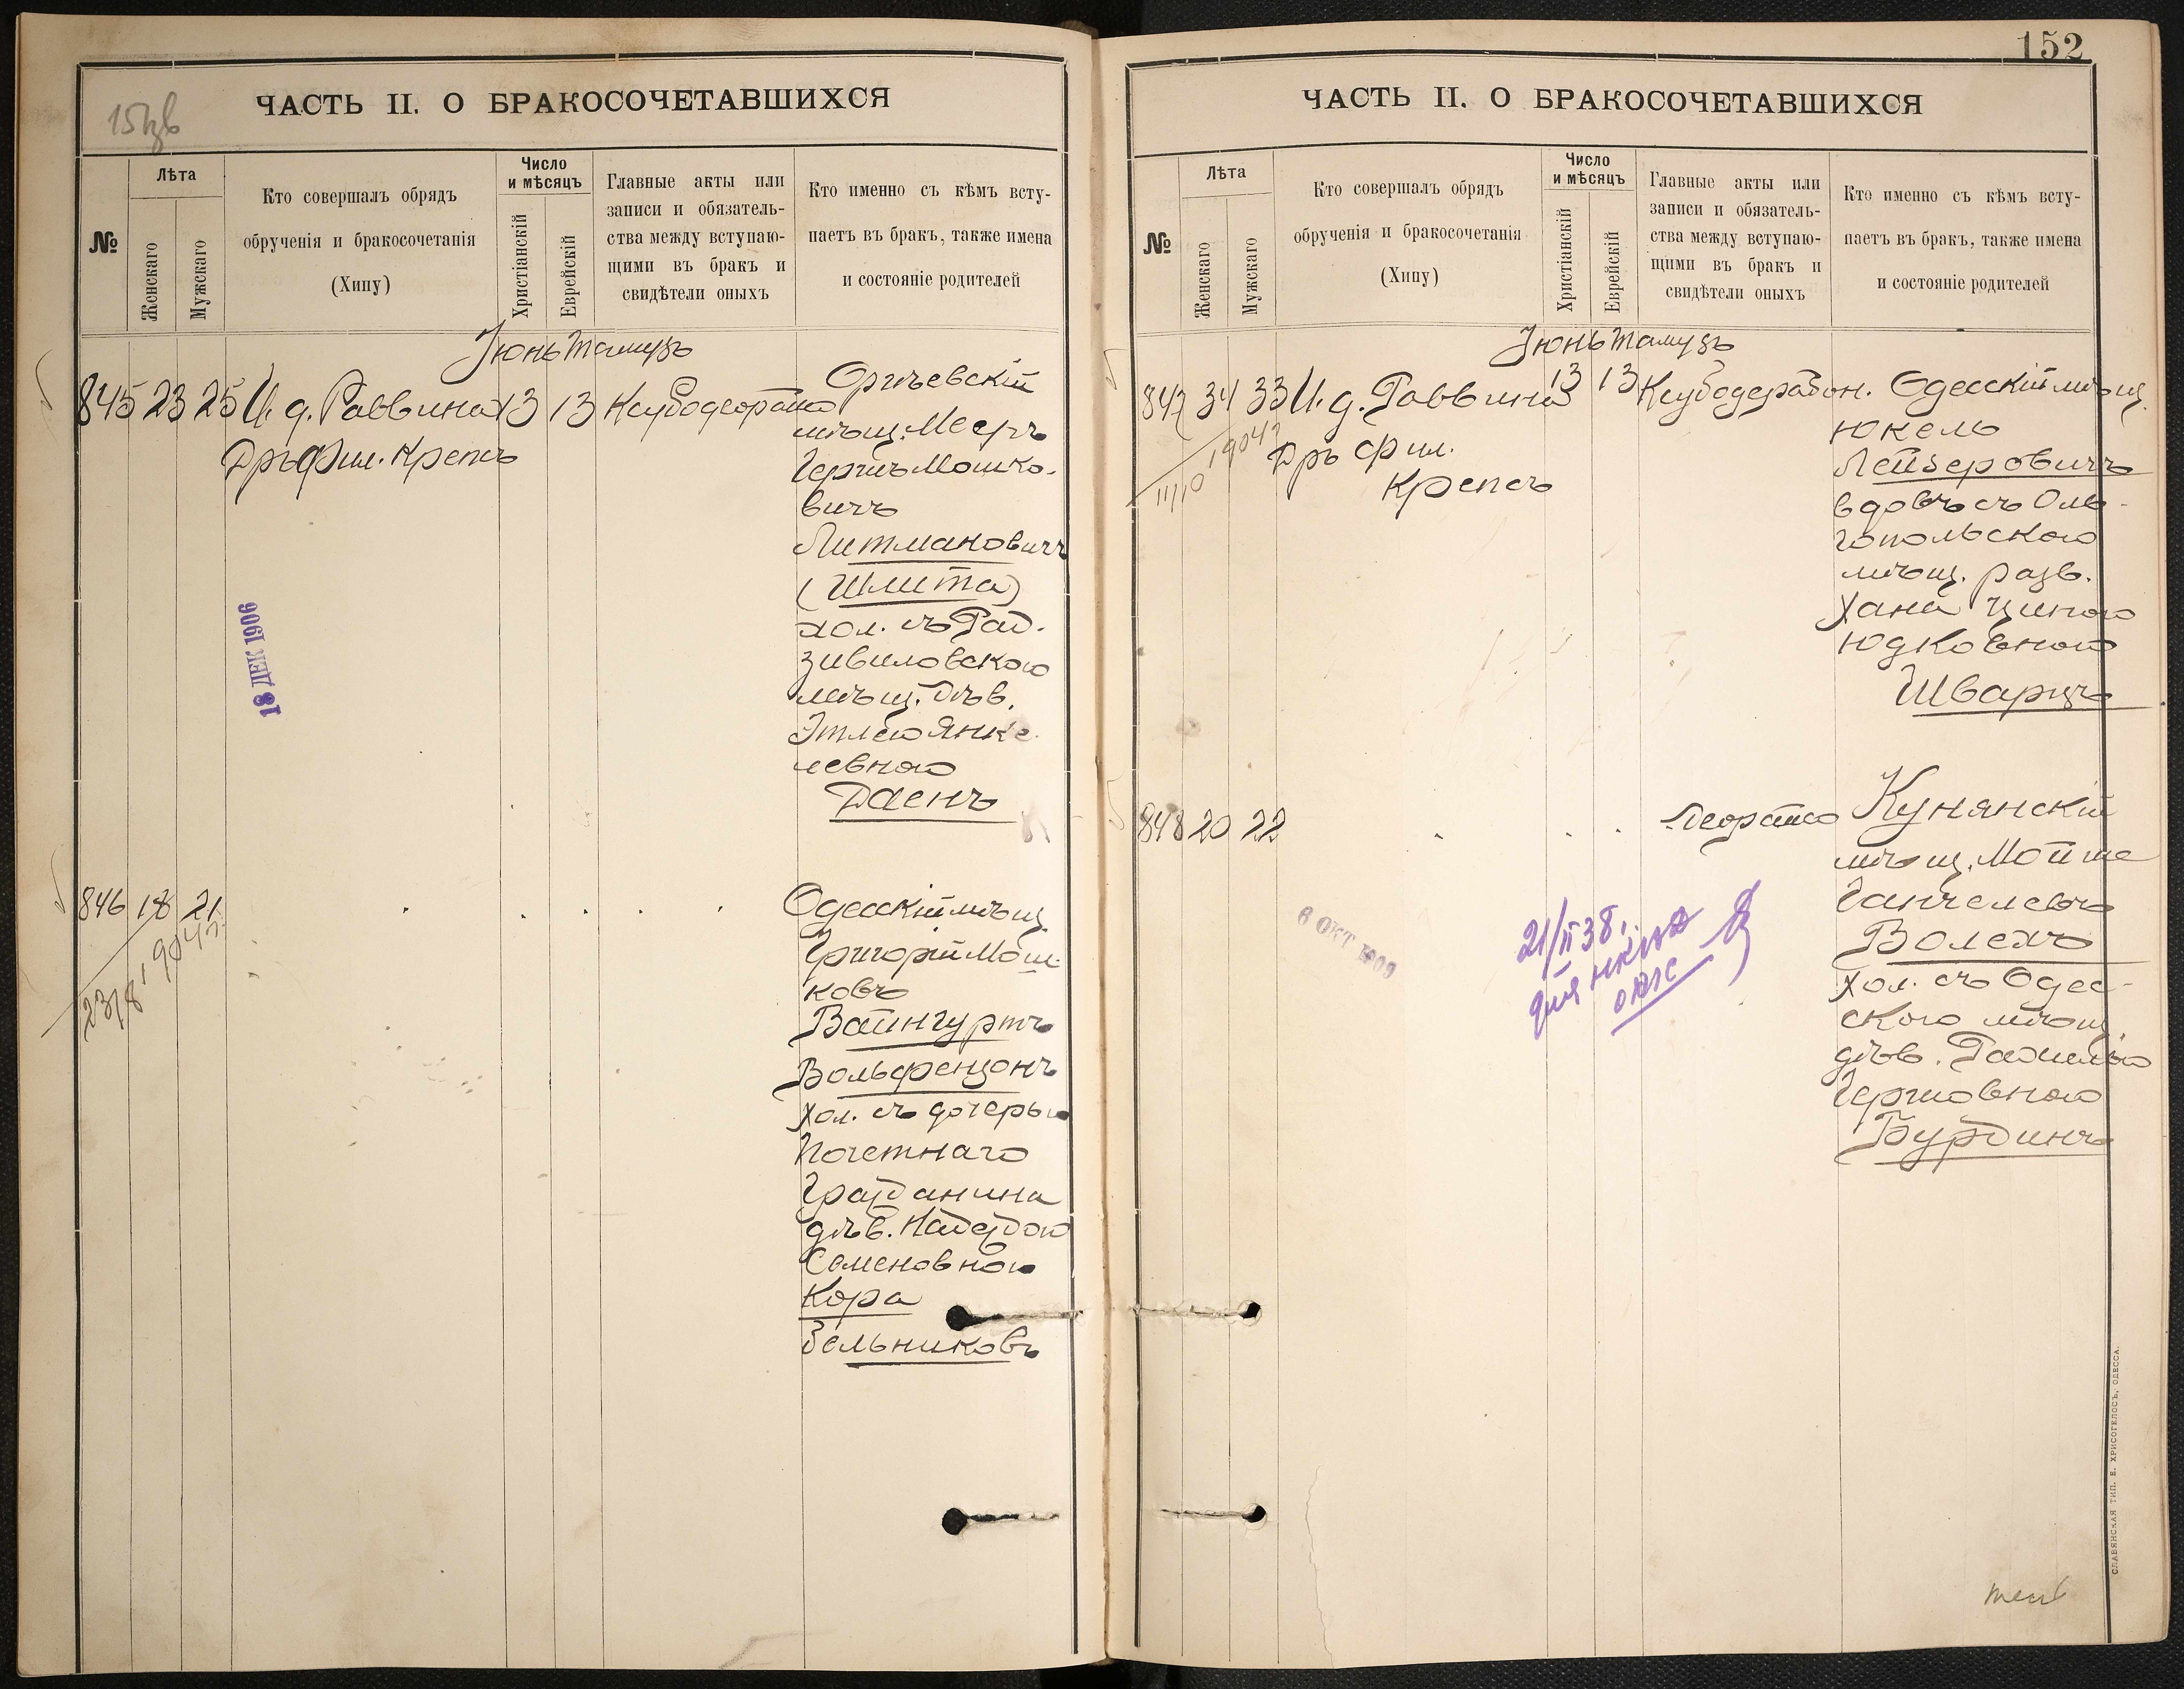 152
ЧАСТЬ II. О БРАКОСОЧЕТАВШИХСЯ
№
Лѣта
Женскаго
Мужскаго
Кто совершалъ обрядъ
обрученія и бракосочетанія
(Хипу)
Число
и мѣсяцъ
Христіанскій
Еврейскій
Главные акты или
записи и обязатель-
ства между вступаю-
щими въ бракъ и
свидѣтели оныхъ
Кто именно съ кѣмъ всту-
паетъ въ бракъ, также имена
и состояніе родителей
Іюнь Тамузъ
845 23 25 И. д. Раввина 13 13
Дръ Фил. Крепсъ
18 ДЕК 1906
Оргѣевскій
мѣщ. Мееръ
Гершъ Мошко-
вичъ
Литмановичъ
(Шмита)
хол. съ Рад-
зивиловскою
мѣщ. дѣв.
Этлею Янке-
левною
Даенъ
846 18 21
23/8 1904 г.
Одесскій мѣщ.
Григорій Мош-
ковъ
Вайнгуртъ
Вольфензонъ
хол. съ дочерью
Почетнаго
Гражданина
дѣв. Надеждою
Семеновною
Кора
Бельниковъ
ЧАСТЬ II. О БРАКОСОЧЕТАВШИХСЯ
№
Лѣта
Женскаго
Мужскаго
Кто совершалъ обрядъ
обрученія и бракосочетанія
(Хипу)
Число
и мѣсяцъ
Христіанскій
Еврейскій
Главные акты или
записи и обязатель-
ства между вступаю-
щими въ бракъ и
свидѣтели оныхъ
Кто именно съ кѣмъ всту-
паетъ въ бракъ, также имена
и состояніе родителей
Іюнь Тамузъ
847 34 33 И. д. Раввина 13 13
11/10 1904 г.
Дръ Фил.
Крепсъ
Одесскій мѣщ.
Юкель
Лейзеровичъ
вдовъ съ Оль-
гопольскою
мѣщ. разв.
Хана Ципою
Юдковною
Шварцъ
848 20 22
6 ОКТ 1909
21/II 38 г.
для НКВД
Кунянскій
мѣщ. Мойше
Ганчелевъ
Волехъ
хол. съ Одес-
скою мѣщ.
дѣв. Рахилью
Гершовною
Бурдинъ
СЛАВЯНСКАЯ ТИП. Е. ХРИСОГЕЛОСЪ, ОДЕССА.